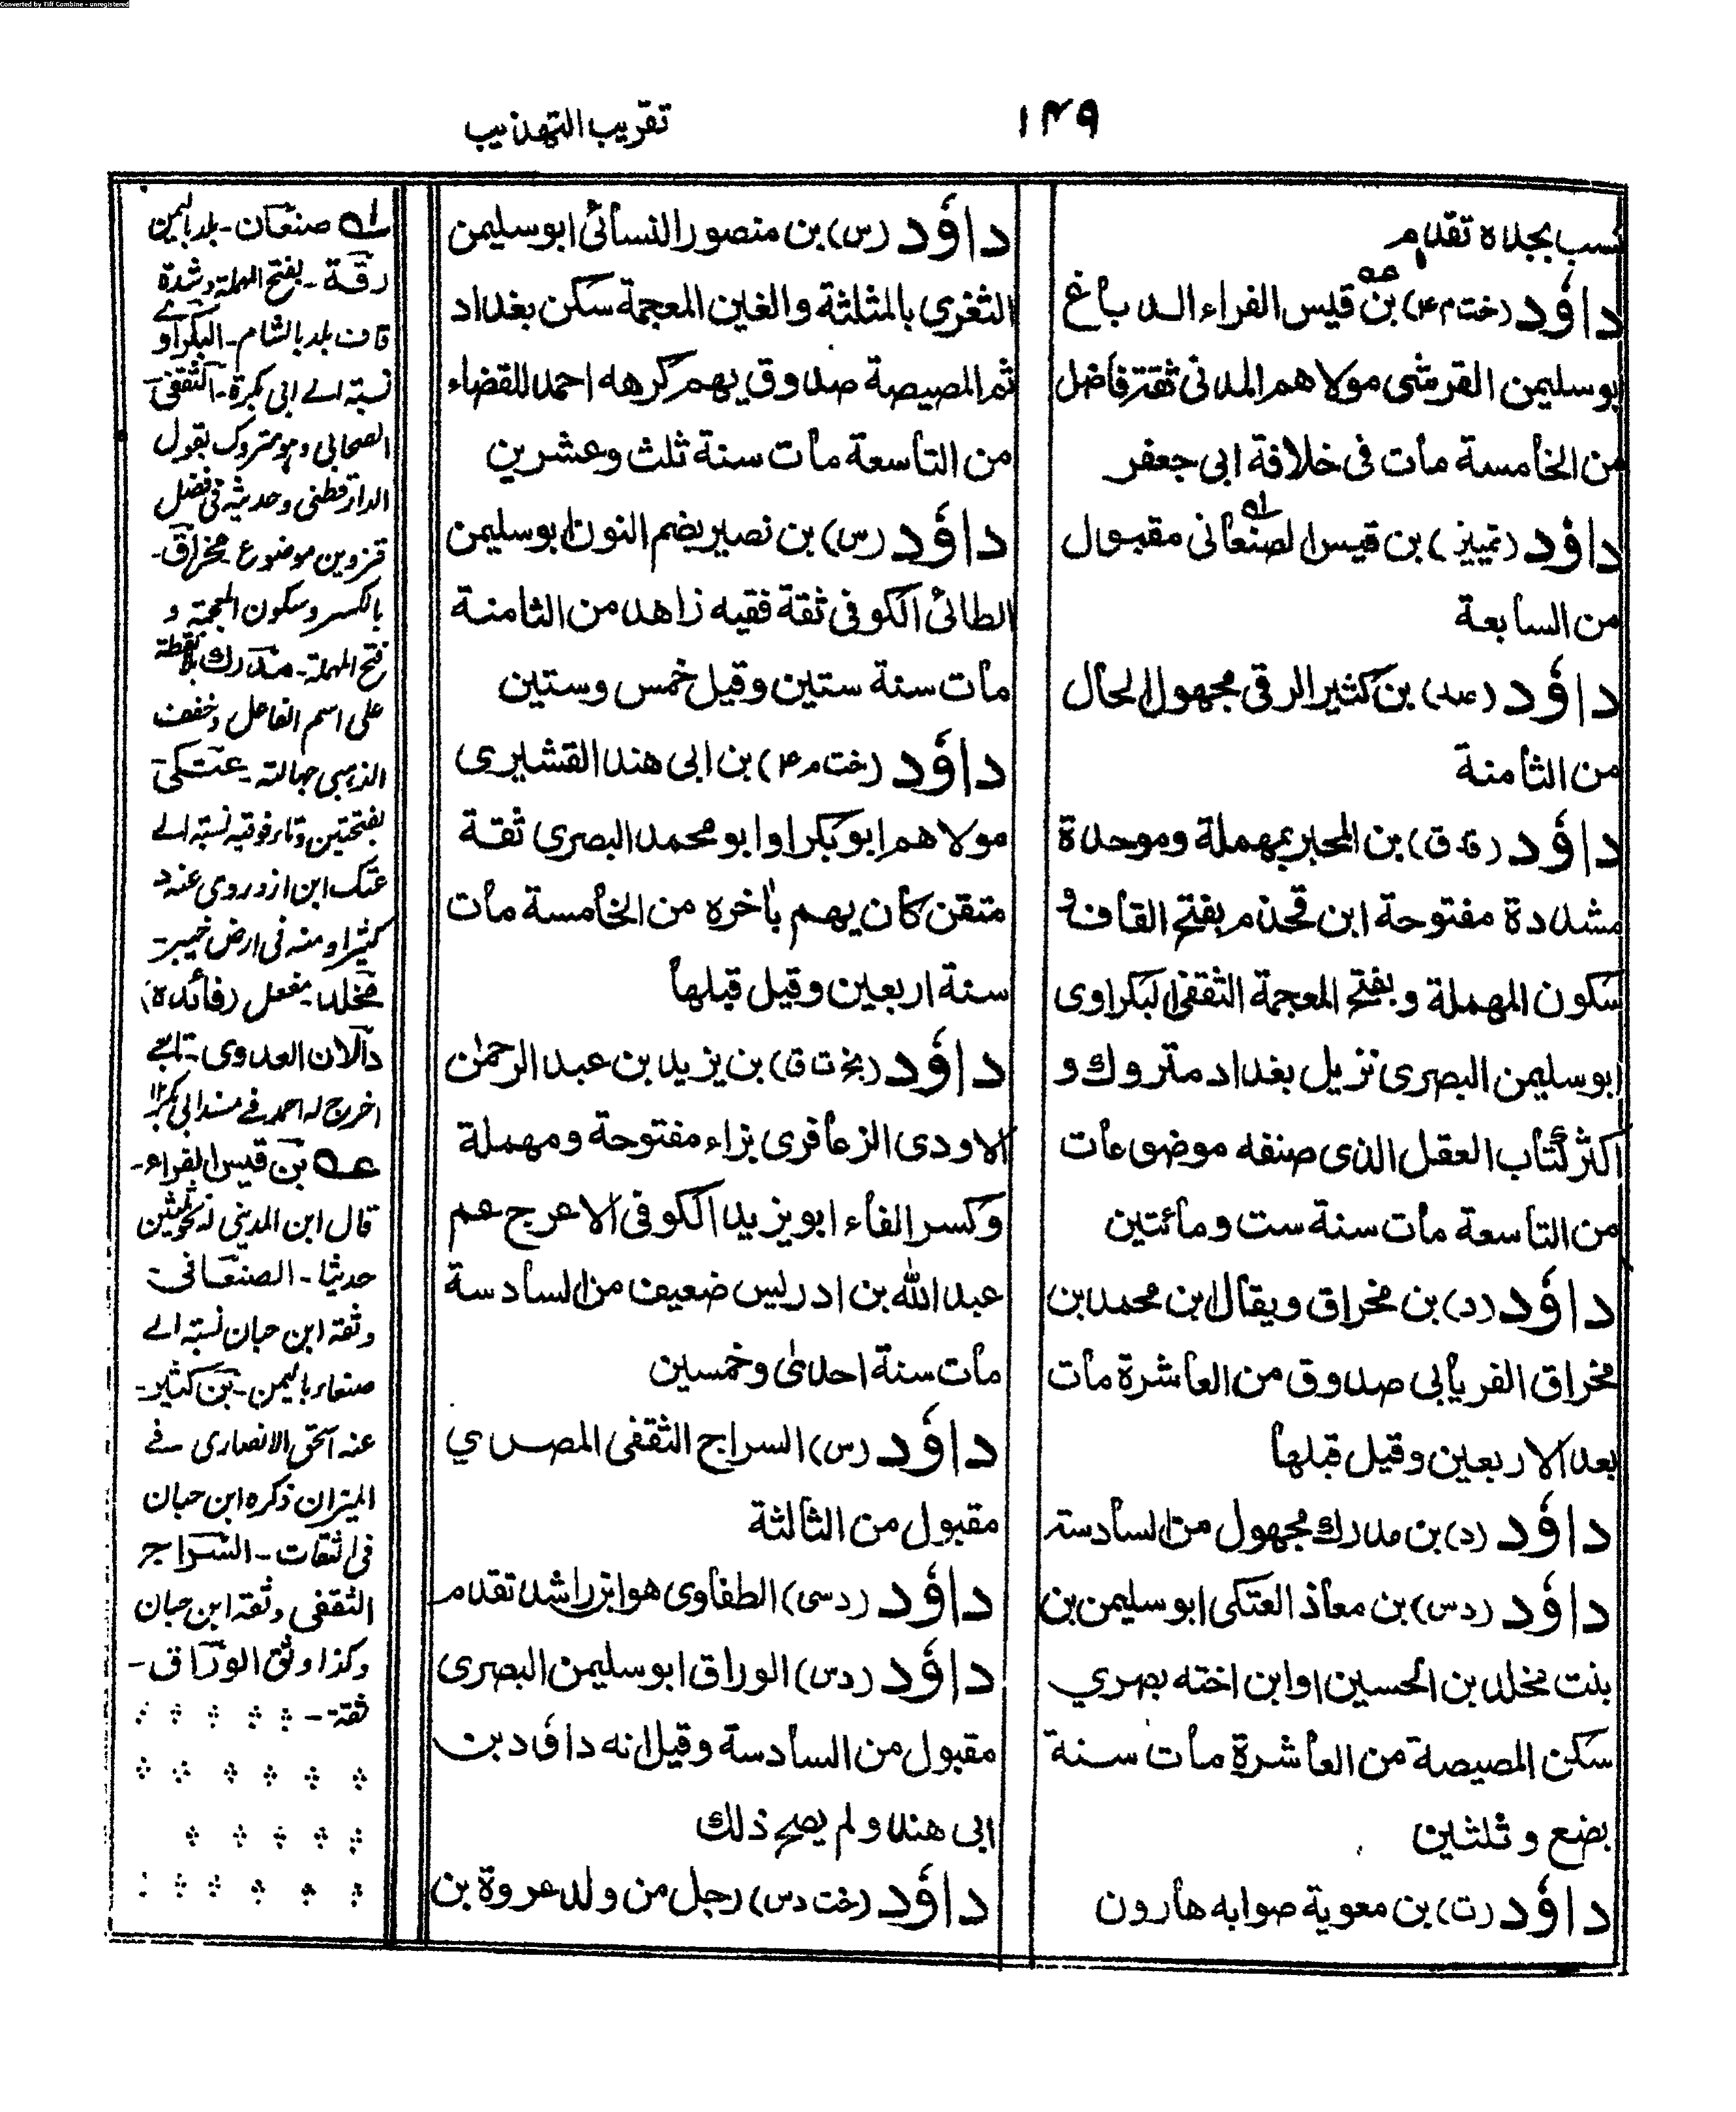 Converted by Tiff Combine - unregistered
تقريب التهذيب
۱۴۹
نسب بجده تقدم
داؤد (خت م ۴) بن قيس الفراء الدباغ
ابوسليمن القرشى مولاهم المدنى ثقة فاضل
من الخامسة مات فى خلافة ابى جعفر
داؤد (تمييز) بن قيس الصنعانى مقبول
من السابعة
داؤد (عه) بن كثير الرقى مجهول الحال
من الثامنة
داؤد (ق) بن المحبر بمهملة وموحدة
مشددة مفتوحة ابن قحذم بفتح القاف و
سكون المهملة وبفتح المعجمة الثقفى البكراوى
ابوسليمن البصرى نزيل بغداد متروك و
اكثر كتاب العقل الذى صنفه موضوعات
من التاسعة مات سنة ست ومائتين
داؤد (د) بن مخراق ويقال ابن محمد بن
مخراق الفريابى صدوق من العاشرة مات
بعد الاربعين وقيل قبلها
داؤد (د) بن مدرك مجهول من السادسة
داؤد (دس) بن معاذ العتكى ابوسليمن بن
بنت مخلد بن الحسين اوابن اخته بصري
سكن المصيصة من العاشرة مات سنة
بضع وثلثين
داؤد (ت) بن معوية صوابه هارون
داؤد (س) بن منصور النسائى ابوسليمن
الثغرى بالمثلثة والغين المعجمة سكن بغداد
ثم المصيصة صدوق يهم كرهه احمد للقضاء
من التاسعة مات سنة ثلث وعشرين
داؤد (س) بن نصير بضم النون ابوسليمن
الطائى الكوفى ثقة فقيه زاهد من الثامنة
مات سنة ستين وقيل خمس وستين
داؤد (خت م ۴) بن ابى هند القشيرى
مولاهم ابوبكر اوابو محمد البصرى ثقة
متقن كان يهم باخره من الخامسة مات
سنة اربعين وقيل قبلها
داؤد (بخ ت ق) بن يزيد بن عبد الرحمٰن
الاودى الزعافرى بزاء مفتوحة ومهملة
وكسر الفاء ابويزيد الكوفى الاعرج عم
عبد الله بن ادريس ضعيف من السادسة
مات سنة احدى وخمسين
داؤد (س) السراج الثقفى المصري
مقبول من الثالثة
داؤد (دسى) الطفاوى هوابن راشد تقدم
داؤد (دس) الوراق ابوسليمن البصرى
مقبول من السادسة وقيل انه داؤد بن
ابى هند ولم يصح ذلك
داؤد (خت دس) رجل من ولد عروة بن
له صنعان - بلد باليمن
رقة - بفتح المهملة وشدة
قاف بلد بالشام - البكراوے
نسبته الے ابى بكرة - الثقفى
الصحابى وهو متروك بقول
الدارقطنى وحديثه فى فضل
قزوين موضوع مخراق -
بالكسر وسكون المعجمة و
فتح المهملة - مدرك بلا نقطة
على اسم الفاعل وخفف
الذهبى جهالته - عتكى
بفتحتين وتاء فوقية نسبته الے
عتك ابن ازد روى عنه د
كثيرا ومنه فى ارض خيبر -
مخلد - بمفعل (فائده)
دآلان العدوى - تابعے
اخرج له احمد فے مسند ابى بكر
عه بن قيس الفراء -
قال ابن المدينى له نحو ثلثين
حديثا - الصنعانى
وثقه ابن حبان نسبته الے
صنعاء باليمن - بن كثير -
عنه اسحٰق الانصارى فے
الميزان ذكره ابن حبان
فى الثقات - السراج
الثقفى وثقه ابن حبان
وكذا وثق الوراق -
ثقة -